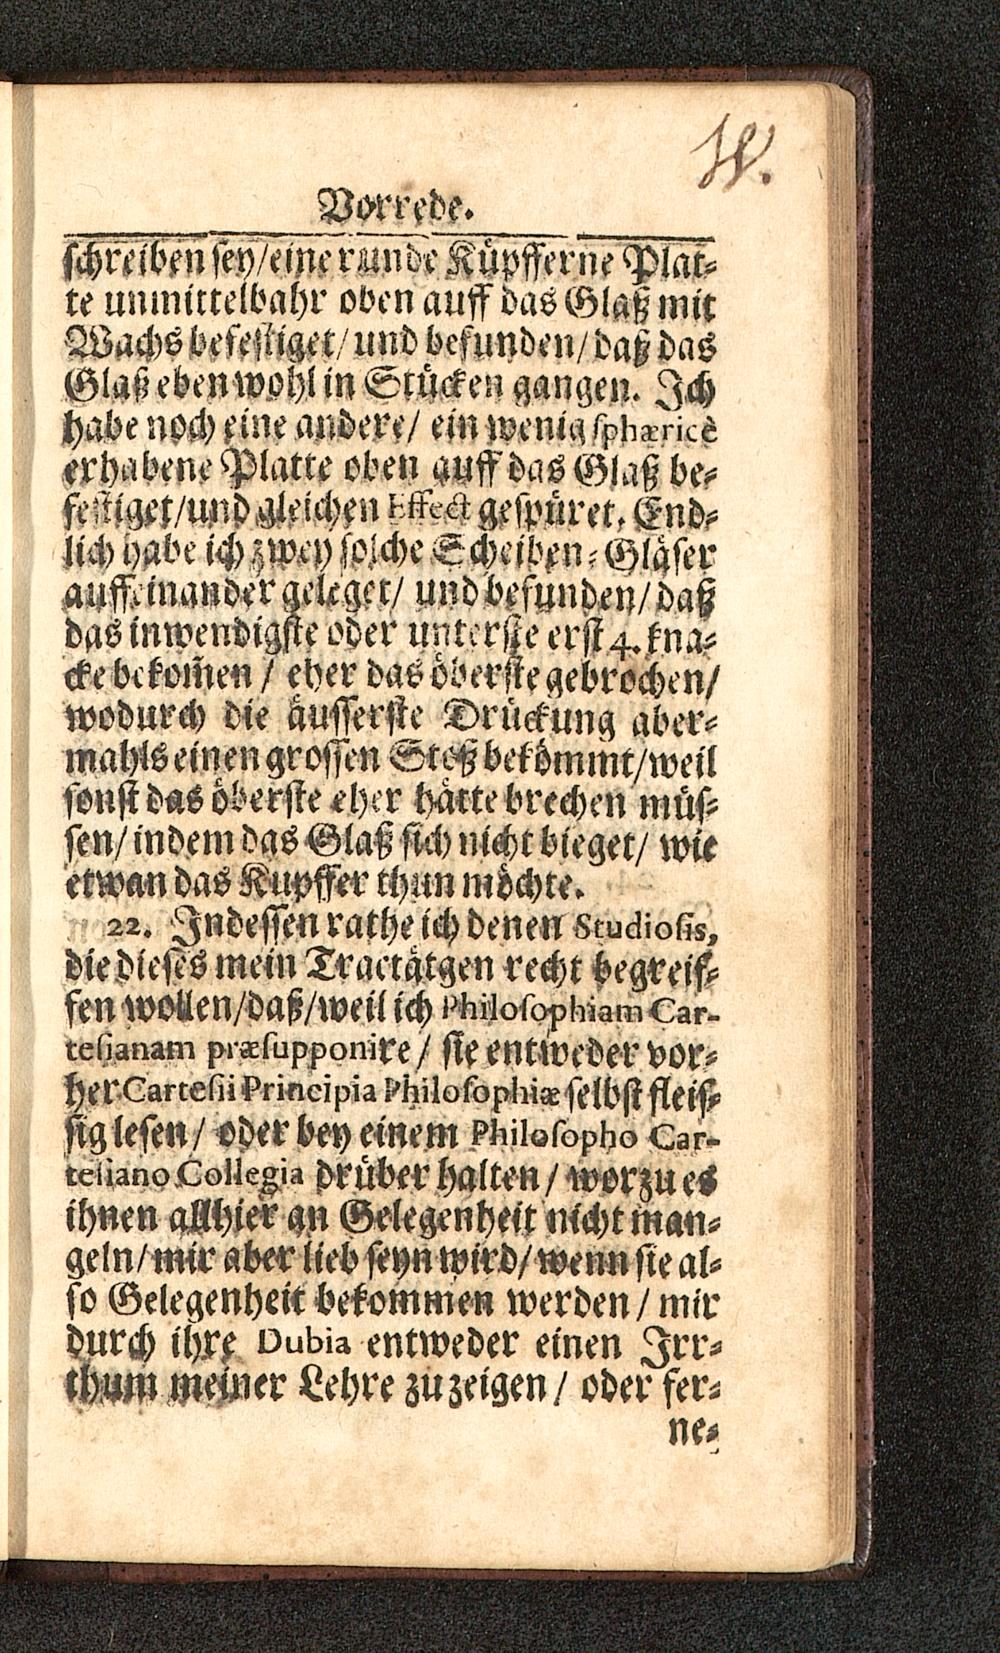 Vorrede.
schreiben sey/eine runde Küpfferne Plat-
te unmittelbahr oben auff das Glaß mit
Wachs befestiget/ und befunden/ daß das
Glaß eben wohl in Stücken gangen. Ich
habe noch eine andere/ ein wenig sphæricè
erhabene Platte oben auff das Glaß be-
festiget/und gleichen Effect gespüret. End-
lich habe ich zwey solche Scheiben-Gläser
auffeinander geleget/ und befunden/ daß
das inwendigste oder unterste erst 4. kna-
cke bekom̃en / eher das öberste gebrochen/
wodurch die äusserste Drückung aber-
mahls einen grossen Stoß bekömmt/weil
sonst das öberste eher hätte brechen müs-
sen/ indem das Glaß sich nicht bieget/ wie
etwan das Kupffer thun möchte.
22. Indessen rathe ich denen Studiosis,
die dieses mein Tractätgen recht begreif-
fen wollen/daß/weil ich Philosophiam Car-
tesianam præsupponire / sie entweder vor-
her Cartesii Principia Philosophiæ selbst fleis-
sig lesen/ oder bey einem Philosopho Car-
tesiano Collegia drüber halten / worzu es
ihnen allhier an Gelegenheit nicht man-
geln/mir aber lieb seyn wird/ wenn sie al-
so Gelegenheit bekommen werden / mir
durch ihre Dubia entweder einen Irr-
thum meiner Lehre zu zeigen / oder fer-
ne-